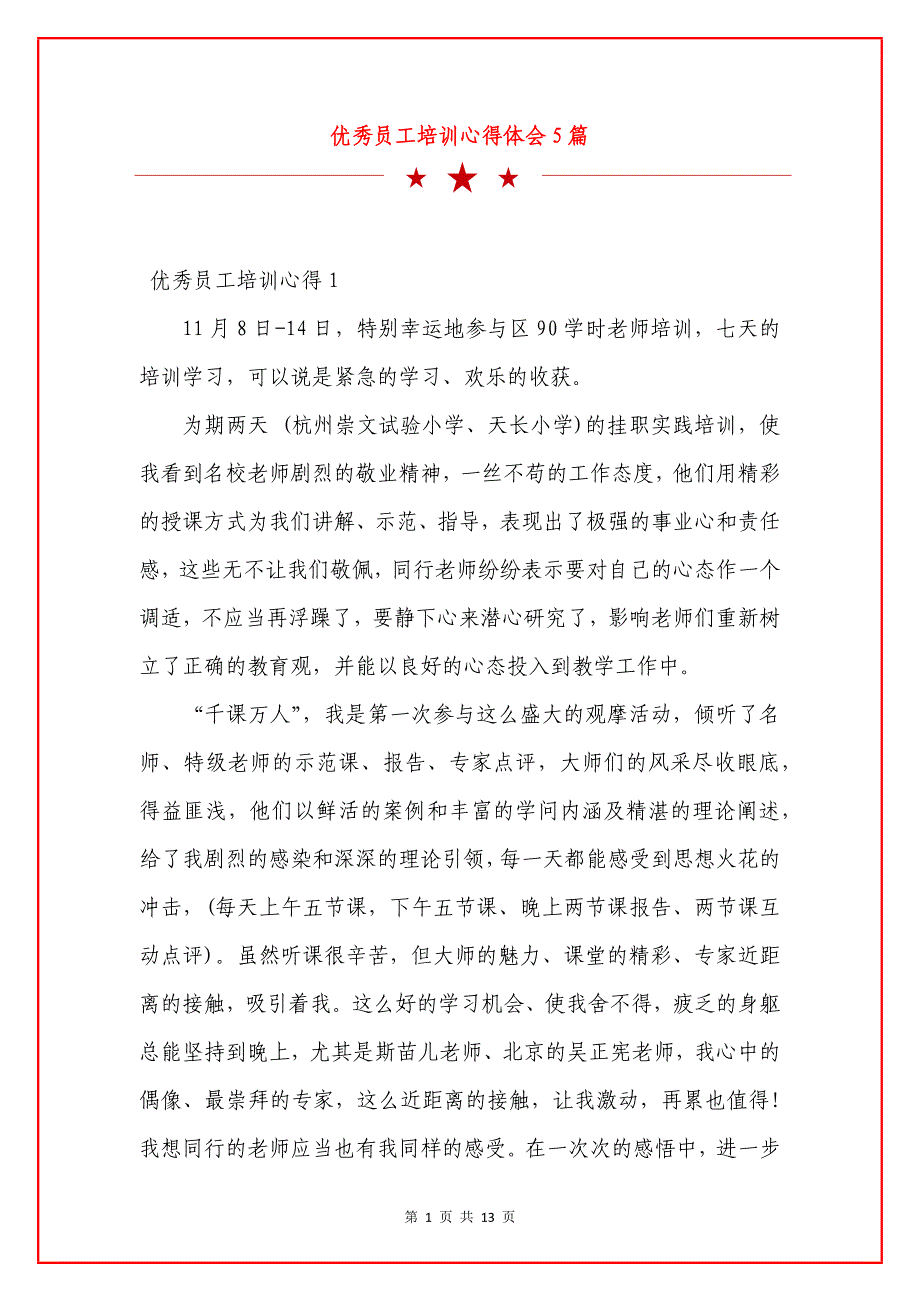 优秀员工培训心得体会5篇
优秀员工培训心得1
11月8日-14日，特别幸运地参与区90学时老师培训，七天的
培训学习，可以说是紧急的学习、欢乐的收获。
为期两天 (杭州崇文试验小学、天长小学)的挂职实践培训，使
我看到名校老师剧烈的敬业精神，一丝不苟的工作态度，他们用精彩
的授课方式为我们讲解、示范、指导，表现出了极强的事业心和责任
感，这些无不让我们敬佩，同行老师纷纷表示要对自己的心态作一个
调适，不应当再浮躁了，要静下心来潜心研究了，影响老师们重新树
立了正确的教育观，并能以良好的心态投入到教学工作中。
“千课万人”，我是第一次参与这么盛大的观摩活动，倾听了名
师、特级老师的示范课、报告、专家点评，大师们的风采尽收眼底，
得益匪浅，他们以鲜活的案例和丰富的学问内涵及精湛的理论阐述，
给了我剧烈的感染和深深的理论引领，每一天都能感受到思想火花的
冲击，(每天上午五节课，下午五节课、晚上两节课报告、两节课互
动点评)。虽然听课很辛苦，但大师的魅力、课堂的精彩、专家近距
离的接触，吸引着我。这么好的学习机会、使我舍不得，疲乏的身躯
总能坚持到晚上，尤其是斯苗儿老师、北京的吴正宪老师，我心中的
偶像、最崇拜的专家，这么近距离的接触，让我激动，再累也值得！
我想同行的老师应当也有我同样的感受。在一次次的感悟中，进一步
第 1 页 共 13 页